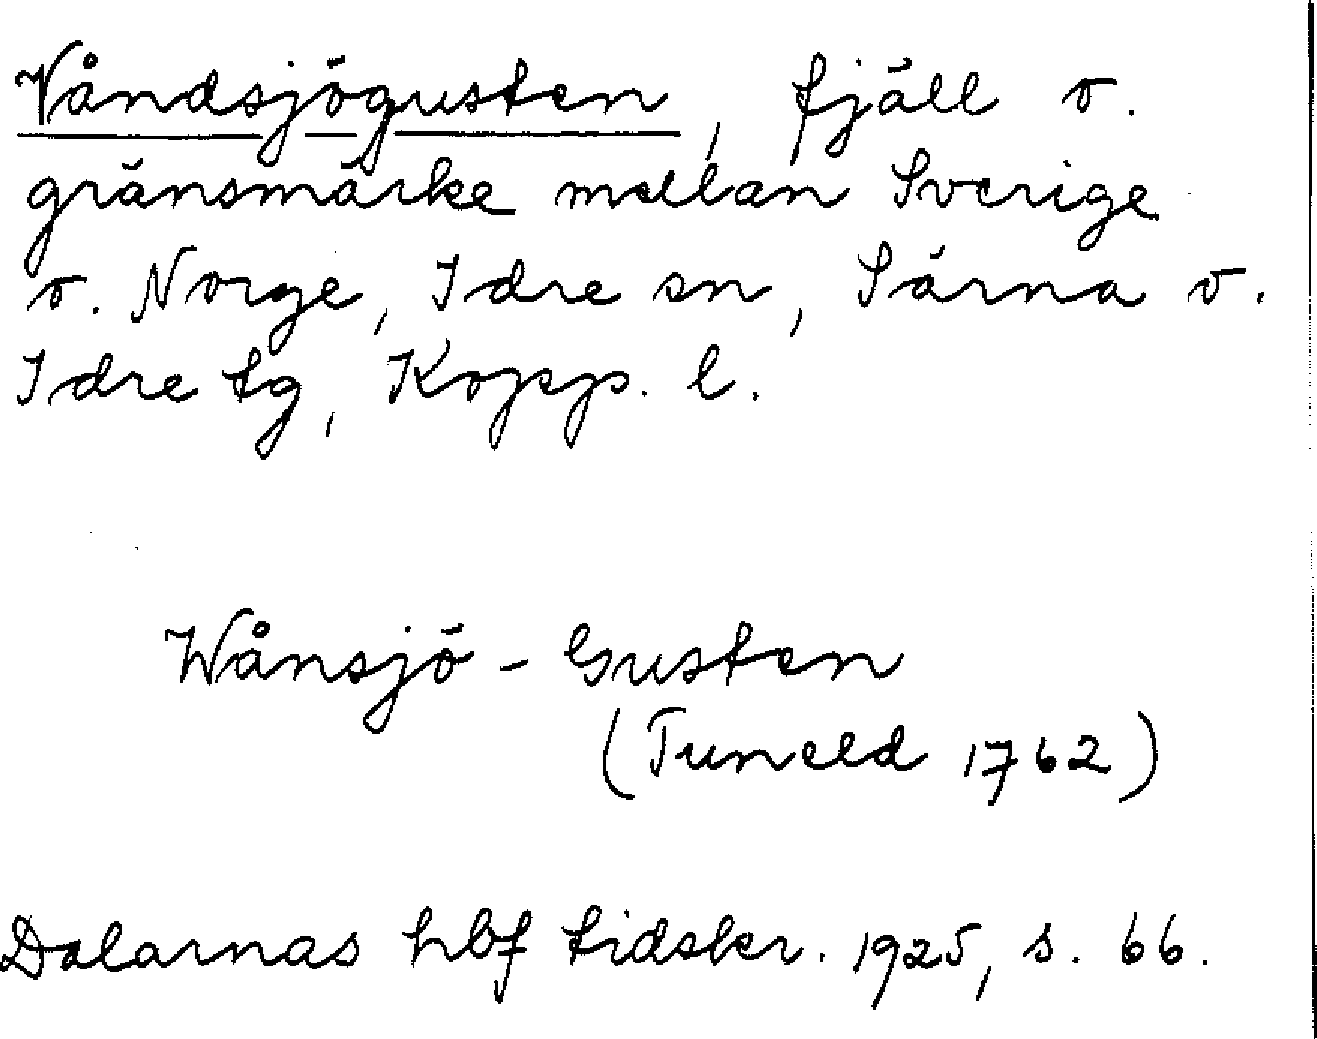 Våndsjögusten, fjäll o.
gränsmärke mellan Sverige
o. Norge, Idre sn, Särna o.
Idre tg, Kopp. l.
Wånsjö - Gusten
(Tuneld 1762)
Dalarnas hbf tidskr. 1925, s. 66.